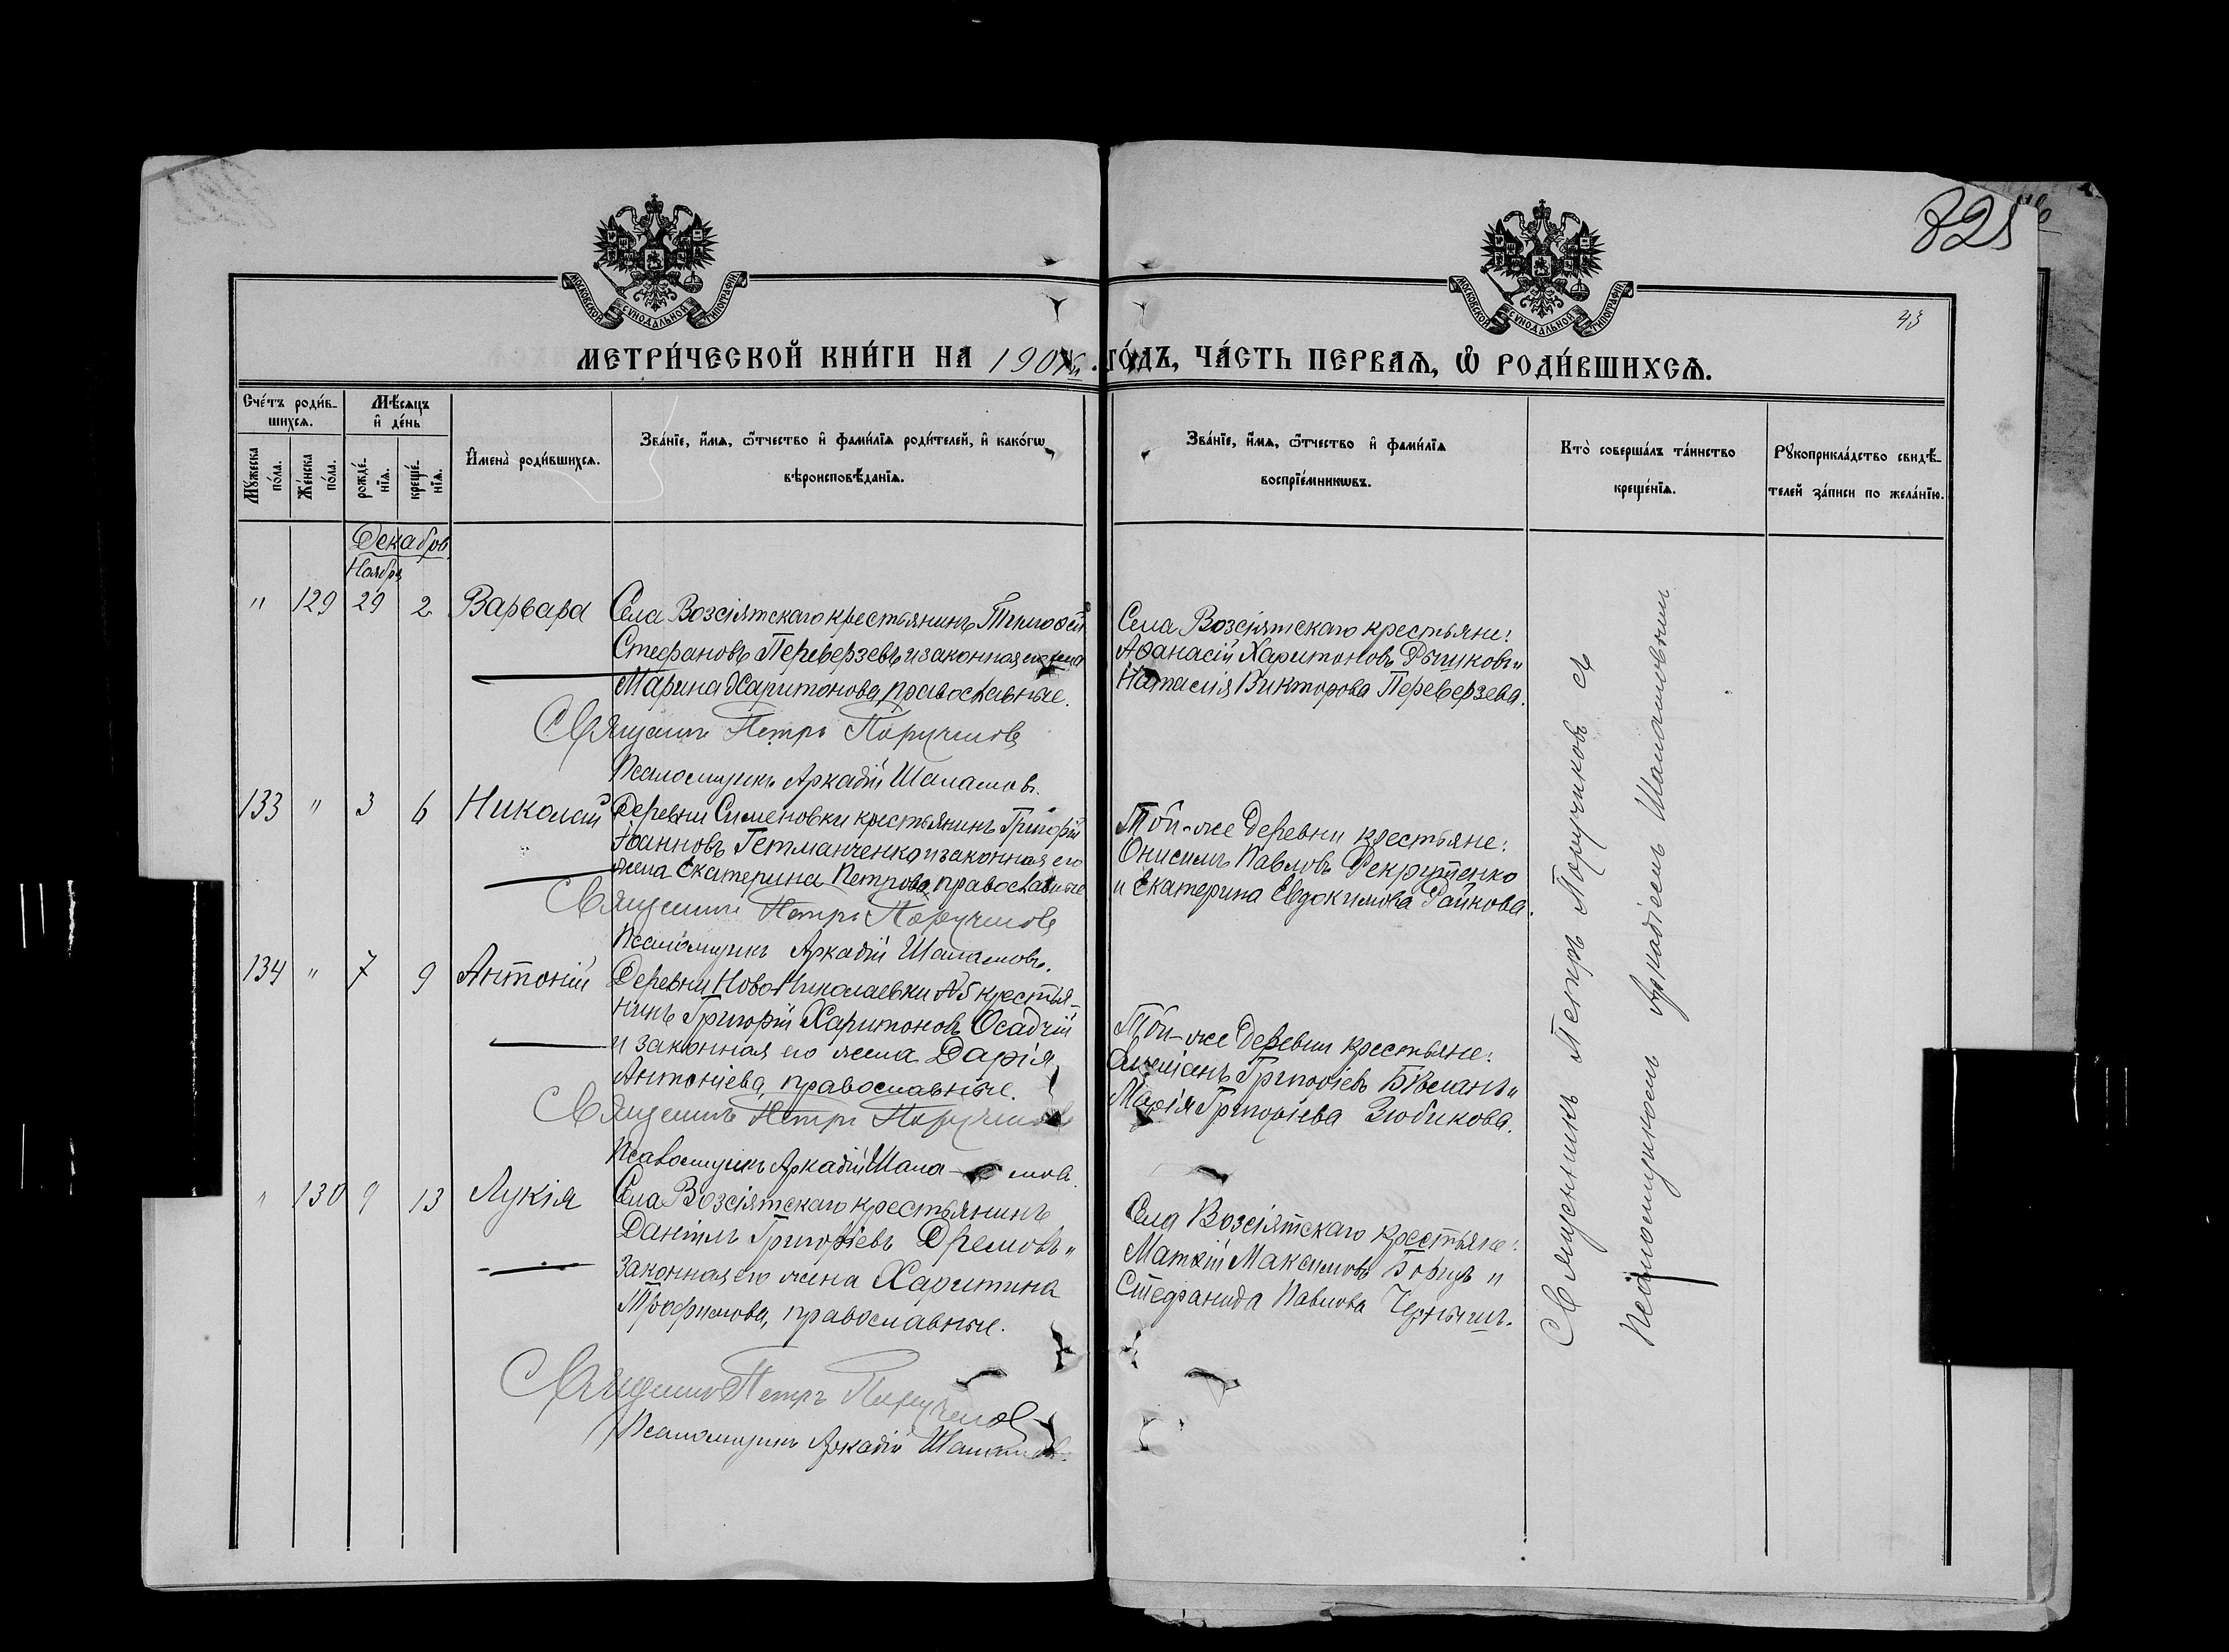 825
43
МОСКОВСКОЙ СѴНОДАЛЬНОЙ ТИПОГРАФІИ
МОСКОВСКОЙ СѴНОДАЛЬНОЙ ТИПОГРАФІИ
МЕТРИ́ЧЕСКОЙ КНИ́ГИ НА 190 ГО́ДЪ, ЧА́СТЬ ПЕРВАѦ, Ѡ҆ РОДИ́ВШИХСѦ.
Сче́тъ роди́в-
шихсѧ.
Мѣ́сѧцъ
и҆ де́нь
Мꙋ́жеска
по́ла.
Же́нска
по́ла.
рожде́-
нїѧ.
креще́-
нїѧ.
И҆мена̀ роди́вшихсѧ.
Зва́нїе, и҆́мѧ, ѻ҆́тчество и҆ фами́лїѧ роди́телей, и҆ како́гѡ
вѣроисповѣ́данїѧ.
Зва́нїе, и҆́мѧ, ѻ҆́тчество и҆ фами́лїѧ
воспрїе́мникѡвъ.
Кто̀ соверша́лъ та́инство
креще́нїѧ.
Рꙋкоприкла́дство свидѣ́-
телей за́писи по жела́нїю.
Декабрь
Ноября
" 129 29 2 Варвара
Села Возсіятскаго крестьянинъ Тимофей
Стефановъ Переверзевъ и законная его жена
Марина Харитонова, православные.
Священникъ Петръ Поручиковъ
Псаломщикъ Аркадій Шаламовъ.
Села Возсіятскаго крестьяне:
Аѳанасій Харитоновъ и
Наталія Викторова Переверзева.
133 " 3 6 Николай
Деревни Сименовки крестьянинъ Григорій
Іоанновъ Гетманченко и законная его
жена Екатерина Петрова, православные
Священникъ Петръ Поручиковъ
Псаломщикъ Аркадій Шаламовъ.
Той-же деревни крестьяне:
Онисимъ Павловъ Рекрутенко
и Екатерина Евдокимова Райкова.
134 " 7 9 Антоній
Деревни Ново-Николаевки №5 крестья-
нинъ Григорій Харитоновъ Осадчій
и законная его жена Дарія
Антоніева, православные.
Священникъ Петръ Поручиковъ
Псаломщикъ Аркадій Шала-мовъ.
Той-же деревни крестьяне:
Григоріевъ и
Марія Григоріева Зюбикова.
" 130 9 13 Лукія
Села Возсіятскаго крестьянинъ
Даніилъ Григоріевъ Дремовъ и
законная его жена Харитина
Трофимова, православные.
Священникъ Петръ Поручиковъ
Псаломщикъ Аркадій Шаламовъ.
Села Возсіятскаго крестьяне:
Матѳій Максимовъ и
Стефанида Павлова Чернышъ.
Священникъ Петръ Поручиковъ съ
Псаломщикомъ Аркадіемъ Шаламовымъ